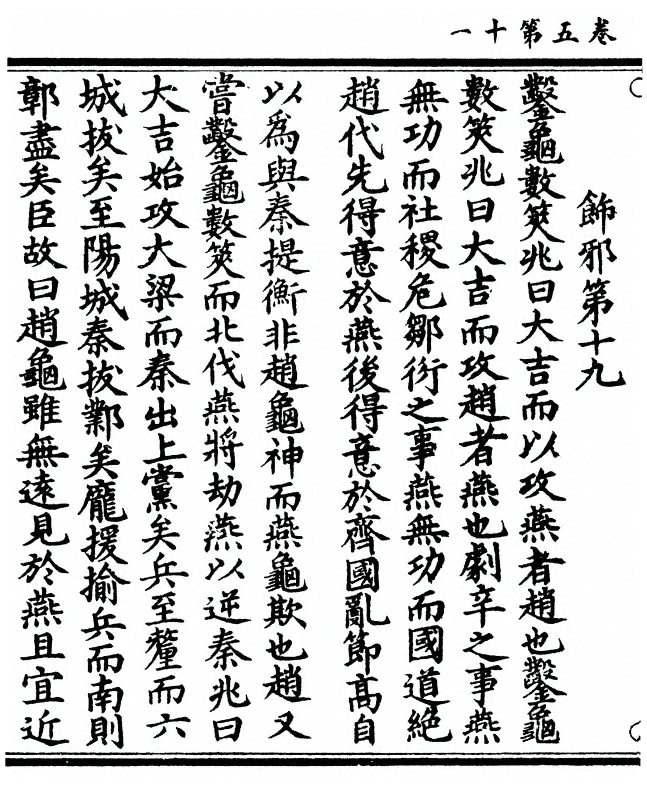 卷五第十一
飾邪第十九
鑿龜數筴兆曰大吉而以攻燕者趙也鑿龜
數筴兆曰大吉而攻趙者燕也劇辛之事燕
無功而社稷危鄒衍之事燕無功而國道絶
趙代先得意於燕後得意於齊國亂節髙自
以為與秦提衡非趙龜神而燕龜欺也趙又
嘗鑿龜數筴而北伐燕將劫燕以逆秦兆曰
大吉始攻大梁而秦出上黨矣兵至釐而六
城拔矣至陽城秦拔鄴矣龐援揄兵而南則
鄣盡矣臣故曰趙龜雖無遠見於燕且宜近